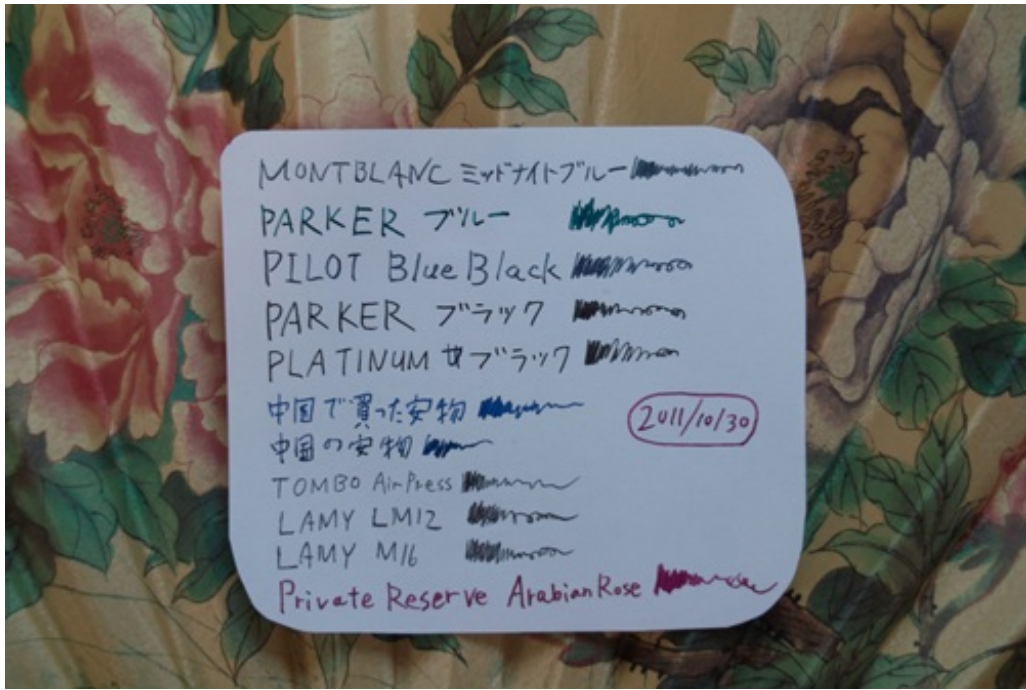 MONTBLANC ミッドナイトブルー
PARKER ブルー
PILOT Blue Black
PARKER ブラック
PLATINUM ブラック
中国で買った安物
2011/10/30
中国の安物
TOMBO AirPress
LAMY LM12
LAMY M16
Private Reserve ArabianRose